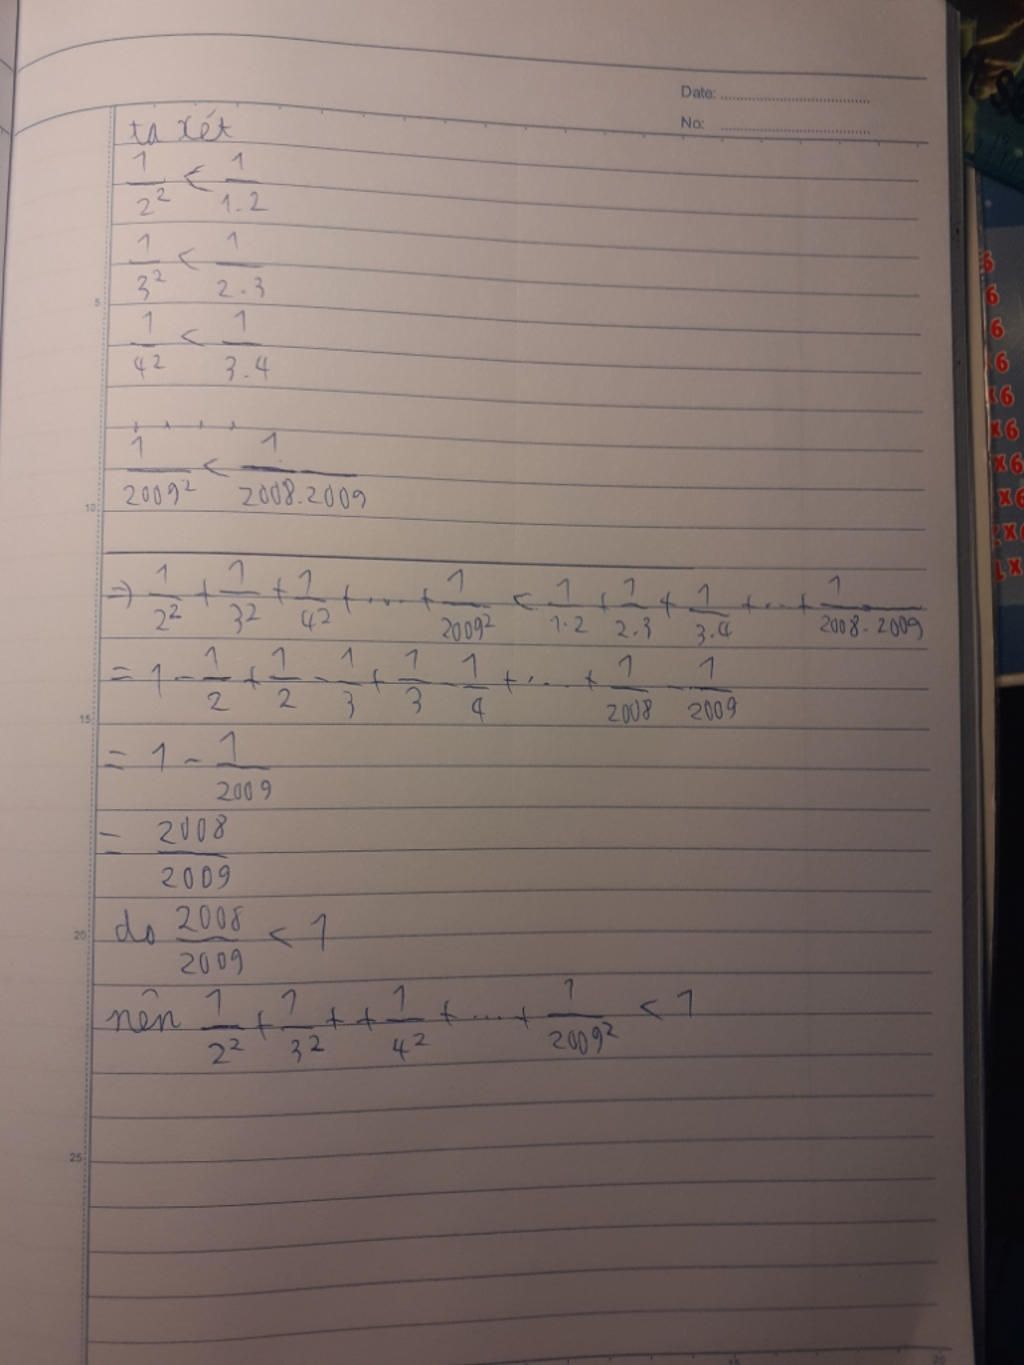 Date:
No:
ta xét
1/2² < 1/1.2
1/3² < 1/2.3
5
1/4² < 1/3.4
....
1/2009² < 1/2008.2009
10
=> 1/2² + 1/3² + 1/4² + .... + 1/2009² < 1/1.2 + 1/2.3 + 1/3.4 + ... + 1/2008.2009
= 1 - 1/2 + 1/2 - 1/3 + 1/3 - 1/4 + .... + 1/2008 - 1/2009
15
= 1 - 1/2009
= 2008/2009
20
do 2008/2009 < 1
nên 1/2² + 1/3² + + 1/4² + .... + 1/2009² < 1
25
6
6
6
×6
×6
×6
×6